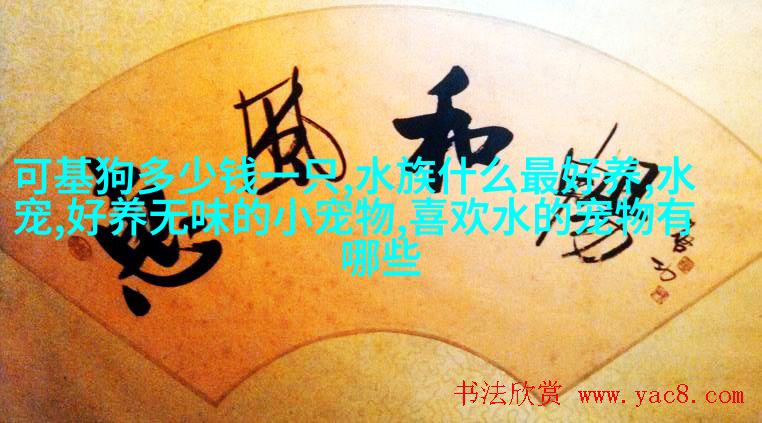 惠风和畅
启功
可基狗多少钱一只,水族什么最好养,水
宠,好养无味的小宠物,喜欢水的宠物有
哪些
书法欣赏 www.yac8.com